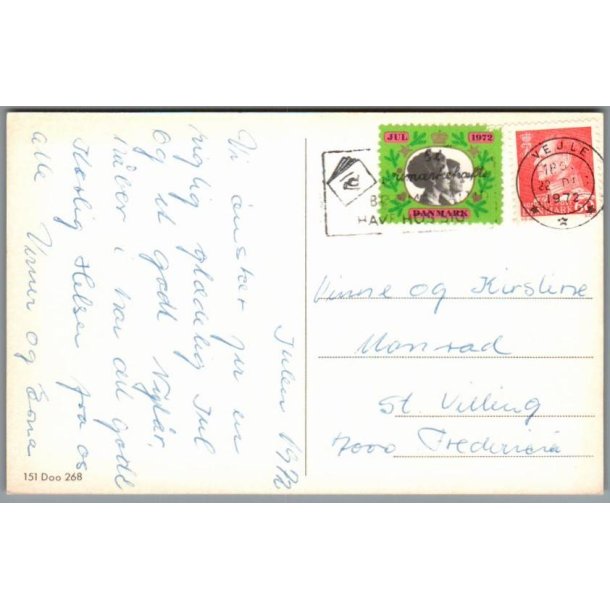 Julen 1972
Vi ønsker jer en
rigtig glædelig Jul
og et godt Nytår.
Håber i har det godt
Kærlig Hilsen fra os
alle
Verner og Edna
JUL 1972
DANMARK
VEJLE
1972
og Kirstine
St. Velling
7000 Fredericia
151 Doo 268